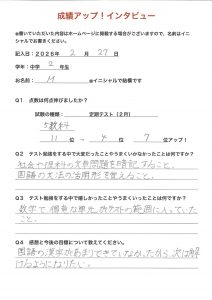 成績アップ！インタビュー
※書いていただいた内容はホームページに掲載する場合がございますので、名前はイニ
シャルでお書きください。
記入日：２０２６年 2 月 27 日
学年：中学 2 年生
お名前： M ※イニシャルで結構です
Q１ 点数は何点伸びましたか？
試験の種類： 定期テスト（2月）
5教科
11 位 → 4 位 7 位アップ！
Q２ テスト勉強をする中で大変だったことやうまくいかなかったことは何ですか？
社会や理科の文章問題を暗記すること。
国語の文法の活用形を覚えること。
Q３ テスト勉強をする中で嬉しかったことやうまくいったことは何ですか？
数学で得意な単元がテストの範囲に入っていた
こと。
Q４ 感想と今後の目標について教えてください。
国語の漢字があまりできていなかったから次は解
けるようになりたい。